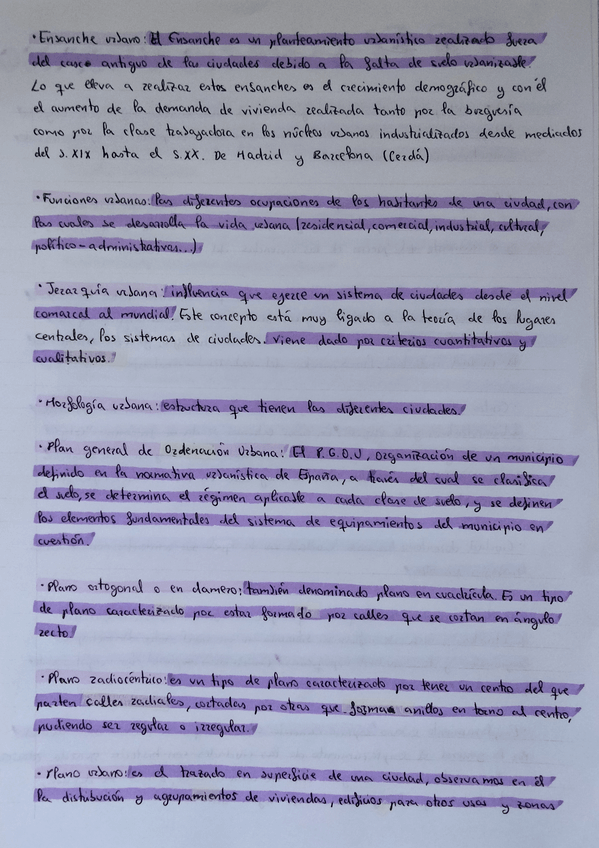 · Ensanche urbano: El Ensanche es un planteamiento urbanístico realizado fuera
del casco antiguo de las ciudades debido a la falta de suelo urbanizable.
Lo que lleva a realizar estos ensanches es el crecimiento demográfico y con él
el aumento de la demanda de vivienda realizada tanto por la burguesía
como por la clase trabajadora en los núcleos urbanos industrializados desde mediados
del S. XIX hasta el S.XX. De Madrid y Barcelona (Cerdá)
· Funciones urbanas: las diferentes ocupaciones de los habitantes de una ciudad, con
las cuales se desarrolla la vida urbana (residencial, comercial, industrial, cultural,
político-administrativas...)
· Jerarquía urbana: influencia que ejerce un sistema de ciudades desde el nivel
comarcal al mundial. Este concepto está muy ligado a la teoría de los lugares
centrales, los sistemas de ciudades. Viene dado por criterios cuantitativos y
cualitativos.
· Morfología urbana: estructura que tienen las diferentes ciudades.
· Plan general de Ordenación Urbana: El P.G.O.U, organización de un municipio
definido en la normativa urbanística de España, a través del cual se clasifica
el suelo, se determina el régimen aplicable a cada clase de suelo, y se definen
los elementos fundamentales del sistema de equipamientos del municipio en
cuestión.
· Plano ortogonal o en damero: también denominado plano en cuadrícula. Es un tipo
de plano caracterizado por estar formado por calles que se cortan en ángulo
recto.
· Plano radiocéntrico: es un tipo de plano caracterizado por tener un centro del que
parten calles radiales, cortadas por otras que forman anillos en torno al centro,
pudiendo ser regular o irregular.
· Plano urbano: es el trazado en superficie de una ciudad, observamos en él
la distribución y agrupamientos de viviendas, edificios para otros usos y zonas